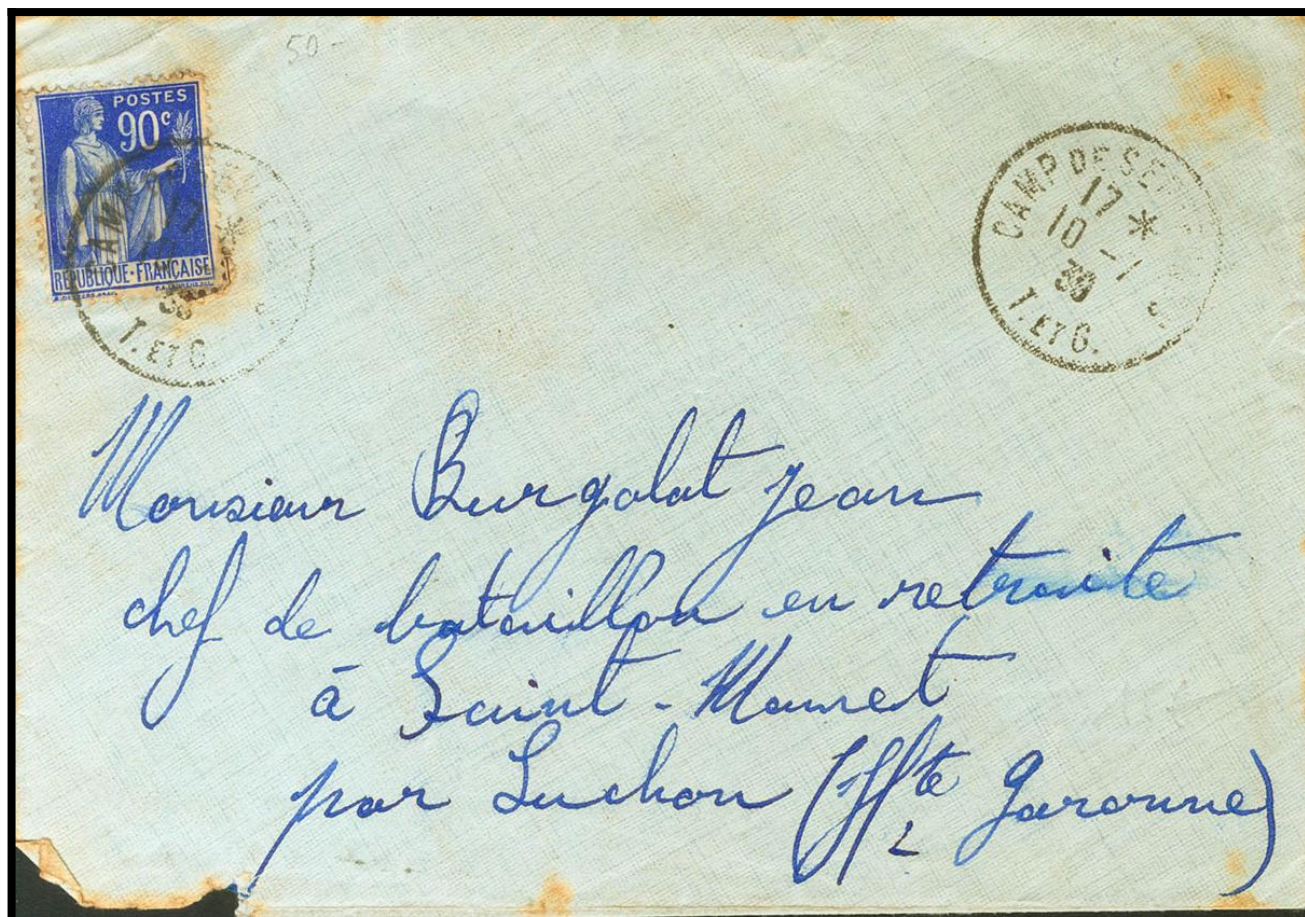 50-
POSTES
90c
REPUBLIQUE·FRANÇAISE
T. ET G.
CAMP DE
17
10 - 1
39
T. ET G.
Monsieur Burgalat Jean
chef de bataillon en retraite
à Saint-Mamet
par Luchon (Hte Garonne)